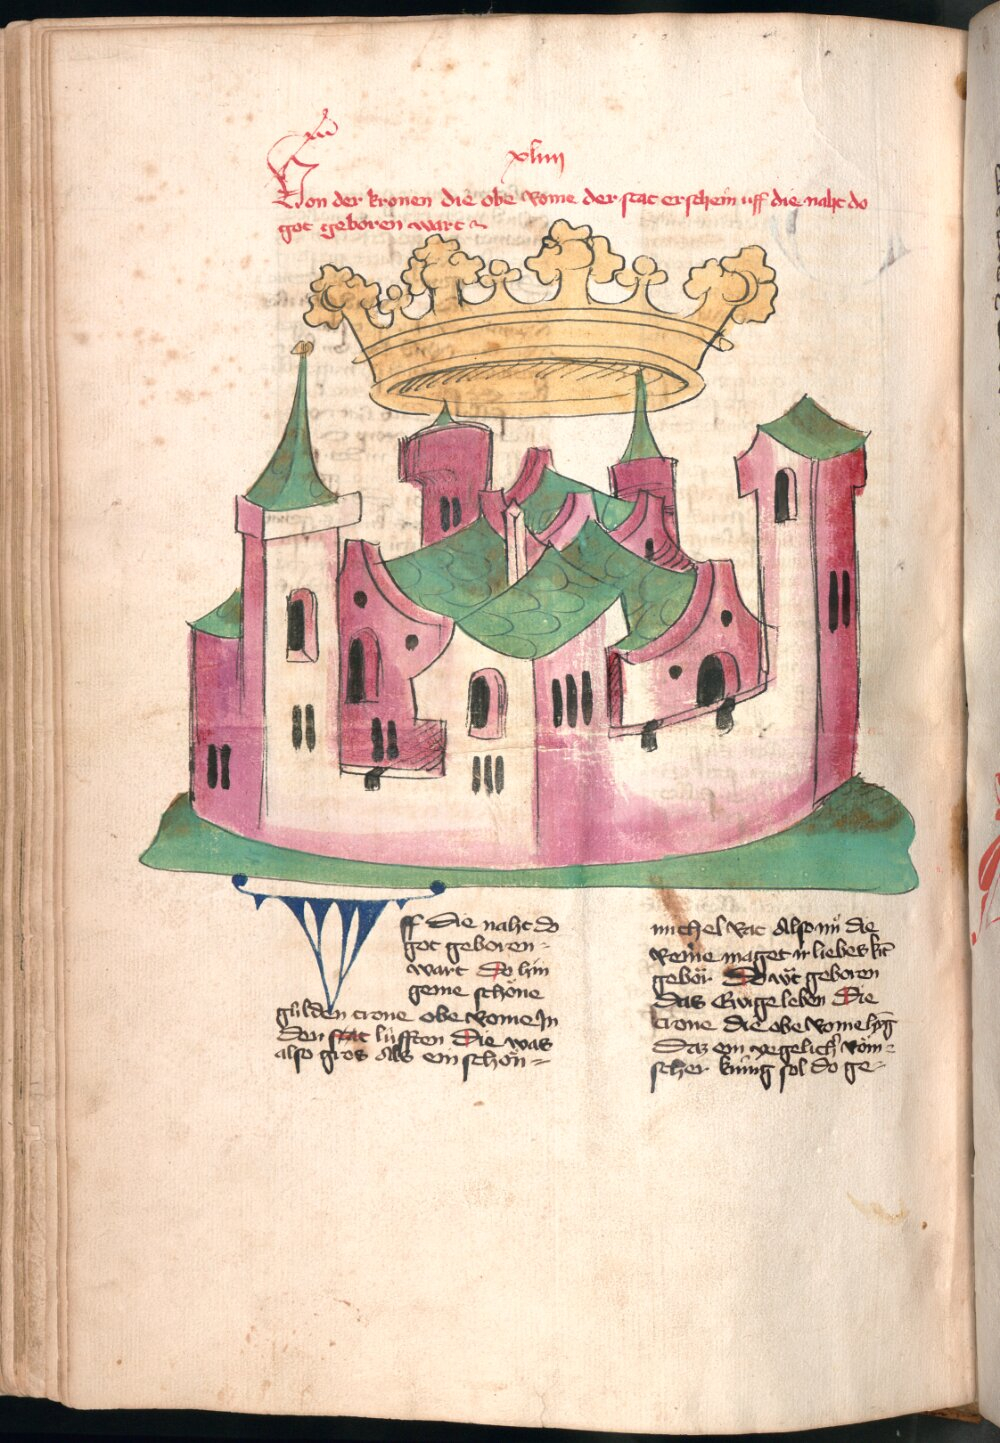 xliiij
Von der kronen die obe Rome der stat erschein uff die naht do
got geboren wart
ff die naht do
got geboren
wart Do hin
geine schöne
gulden crone obe Rome In
den stat lüfften Die was
also gros Als ein schön
michel rat Also nů die
reine maget ir liebes kīt
gebor Do wt geboren
das Ewige leben Die
crone die obe Rome
Daz ein yegelich röm
scher künig sol do ge